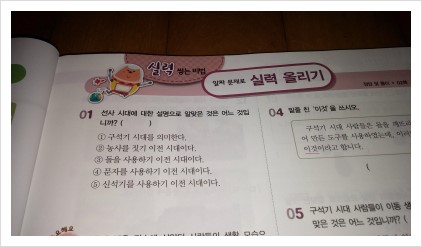 실력 쌓는 비법
알짜 문제로 실력 올리기
01 선사 시대에 대한 설명으로 알맞은 것은 어느 것입
니까? ( )
① 구석기 시대를 의미한다.
② 농사를 짓기 이전 시대이다.
③ 돌을 사용하기 이전 시대이다.
④ 문자를 사용하기 이전 시대이다.
⑤ 신석기를 사용하기 이전 시대이다.
04 밑줄 친 '이것'을 쓰시오.
구석기 시대 사람들은 돌을
어 만든 도구를 사용하였는데,
이것이라고 합니다.
(
05 구석기 시대 사람들이 이동
맞은 것은 어느 것입니까?